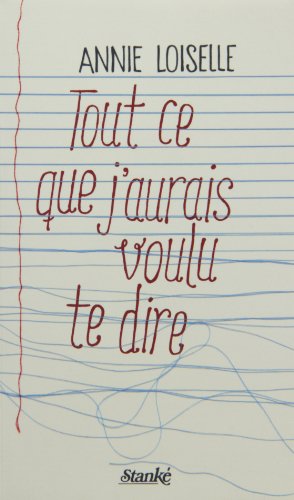 ANNIE LOISELLE
Tout ce
que j'aurais
voulu
te dire
Stanké